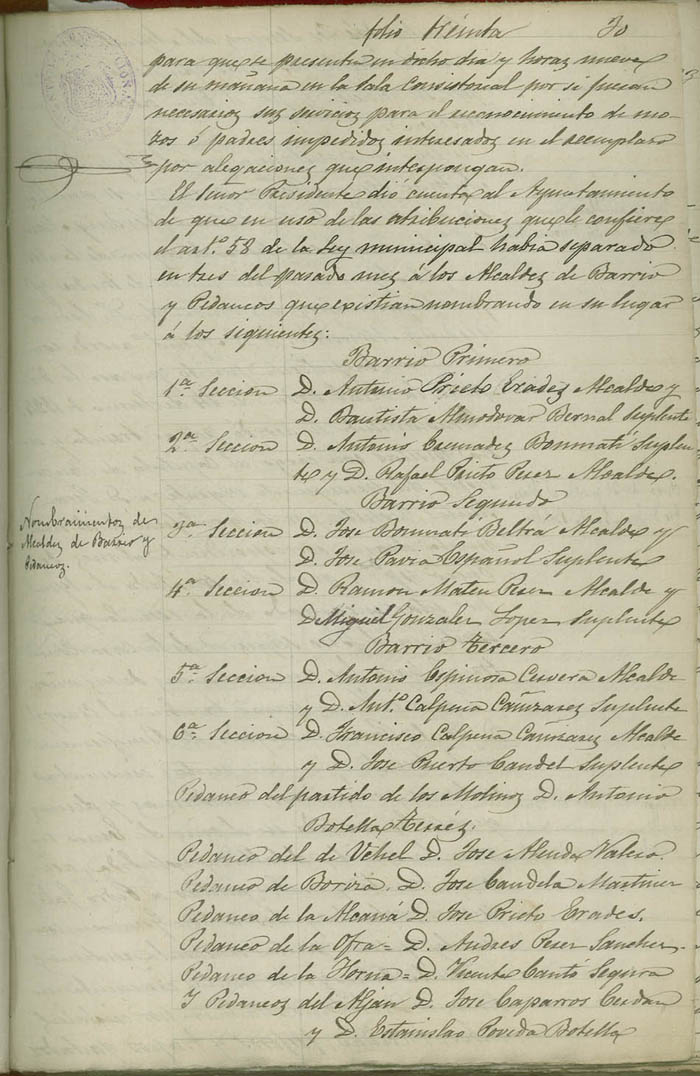 folio treinta 30
para que se presenten en dicho dia y horas nueve
de su mañana en la Sala Consistorial por si fueran
necesarios sus servicios para el reconocimiento de mo-
zos ó padres impedidos interesados en el reemplazo
por alegaciones que interpongan.
El Señor Presidente dió cuenta al Ayuntamiento
de que en uso de las atribuciones que le confiere
el art.º 58 de la Ley municipal habia separado
en tres del pasado mes á los Alcaldes de Barrio
y Pedaneos que existian nombrando en su lugar
á los siguientes:
Barrio Primero
1ª Seccion D. Antonio Prieto Erades Alcalde y
D. Bautista Almodovar Bernal Suplente
2ª Seccion D. Antonio Bonmatí Suplen-
te y D. Rafael Pinto Perez Alcalde.
Barrio Segundo
Nombramientos de
Alcaldes de Barrio y
Pedaneos.
3ª Seccion D. Jose Bonmatí Beltrá Alcalde y
D. Jose Pavia Español Suplente
4ª Seccion D. Ramon Mateu Perez Alcalde y
D Miguel Gonzalez Lopez Suplente
Barrio tercero
5ª Seccion D. Antonio Espinosa Cervera Alcalde
y D. Antº Calpena Cañizares Suplente
6ª Seccion D. Francisco Calpena Cañizares Alcalde
y D. Jose Puerto Candel Suplente
Pedaneo del partido de los Molinos D. Antonio
Botella
Pedaneo del de Uchel D. Jose Alenda Valero.
Pedaneo de D. Jose Candela Martinez
Pedaneo de la Alcaná D. Jose Prieto Erades.
Pedaneo de la Ofra = D. Andres Perez Sanchez.
Pedaneo de la Horna = D. Vicente Cantó Segura
Y Pedaneos del Aljau D. Jose Caparros Cerdan
y D. Estanislao Poveda Botella